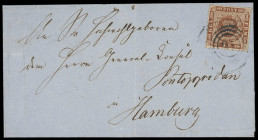 An Sr Hochwohlgeboren
dem Herrn General-Konsul
Pontoppidan
in
Hamburg